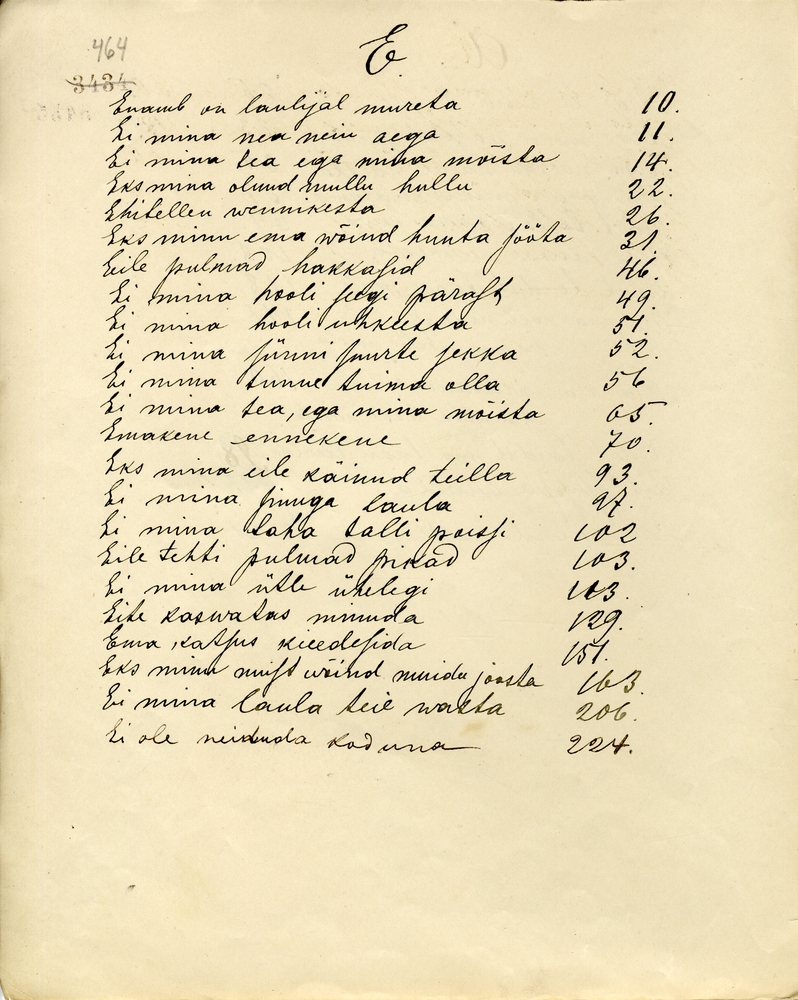 464
3434
E
Enamb on laulijal mureta 10.
Ei mina nea neiu aega 11.
Ei mina tea ega mina mõista 14.
Eks mina olnud mullu hullu 22.
Ehitellen wennikesta 26.
Eks minu ema wõind huuta sööta 31.
Eile pulmad hakkasid 46.
Ei mina hooli seegi pärast 49.
Ei mina hooli uhkeesta 51.
Ei mina sünni suurte sekka 52.
Ei mina tunne tuima olla 56
Ei mina tea, ega mina mõista 65.
Emakene ennekene 70.
Eks mina eile käinud teilla 93.
Ei mina sinuga laula 97.
Ei mina taha talli poissi 102
Eile tehti pulmad pikad 103.
Ei mina ütle ühelegi 113.
Eite kaswatas minuda 129.
Ema katsus keedesida 151.
Eks minu must wõind muidu joosta 163.
Ei mina laula teie wasta 206.
Ei ole neiduda koduna 224.